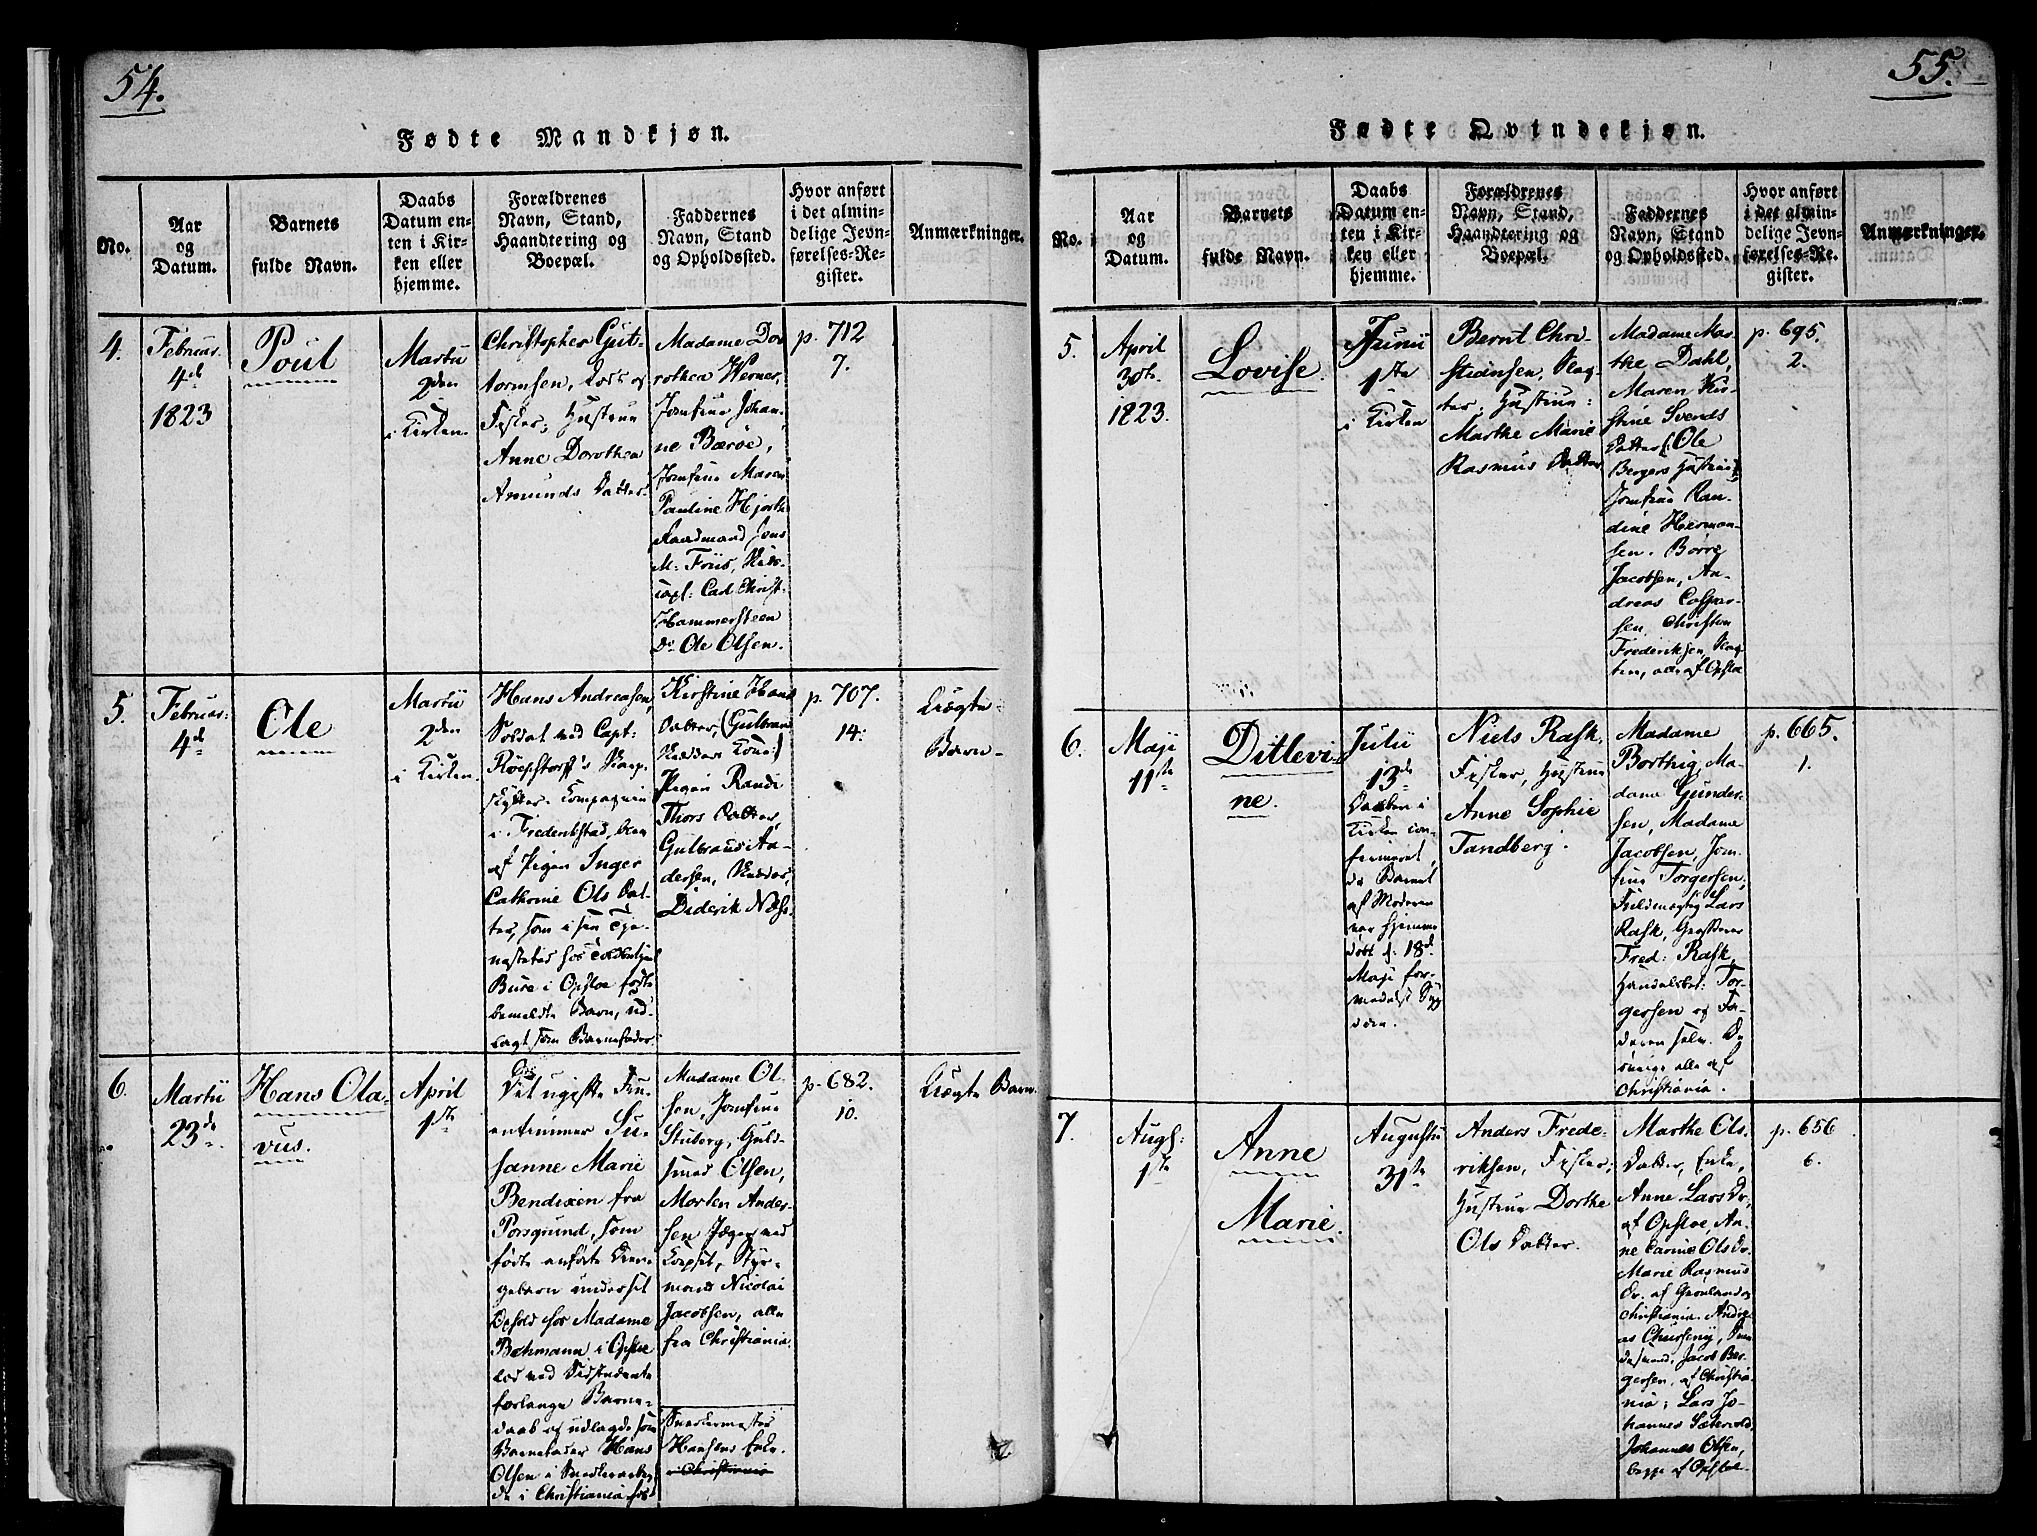 54.
Fødte Mandkjøn.
No.
Aar
og
Datum.
Barnets
fulde Navn.
Daabs
Datum en-
ten i Kir-
ken eller
hjemme.
Forældrenes
Navn, Stand,
Haandtering og
Boepæl.
Faddernes
Navn, Stand
og Opholdssted.
Hvor anført
i det almin-
delige Jevn-
førelses-Re-
gister.
Anmærkninger.
4.
Februar.
4d
1823
Poul
Martii
2den
i Kirken.
Christopher Gut-
tormsen, Lods og
Fisker, Hustrue
Anne Dorothea
Amunds Datter.
Madame Do-
rothea Werner,
Jomfrue Johan-
ne Bærøe,
Jomfrue Maren
Pauline Hjorth
Jens
M. Friis,
Carl Christ.
Hammersteen
Ole Olsen.
p. 712
7.
5.
Februar:
4d
Ole
Martii
2den
i Kirken.
Hans Andreasen,
Soldat ved Capt:
Röepstorff's
Compagnie
i Frederikstad,
af Pigen Inger
Cathrine Ols Dat-
ter, som i sin Tje-
nestetid hos
Buse i Opsloe fødte
bemeldte Barn, ud-
lagt som Barnefader.
Kirstine Hans
Datter, (Gulbran
Kone)
Pigen Randi
Thors Datter,
Gulbrand An-
dersen,
Diderik Næss.
p. 707.
14.
Uægte
Barn
6.
Martii
23de
Hans Ola-
vus.
April
1ste
Det ugifte Fru-
entimmer Su-
sanne Marie
Bendixen fra
Porsgrund, som
fødte anførte Dren-
gebarn under sit
Ophold hos Madame
Bahmann i Opsloe
forlange Barne-
daab og udlagde som
Barnefader Hans
Olsen i
i Christiania
Madame Ol-
sen, Jomfrue
Stuborg, Guld-
smed Olsen,
Morten Ander-
sen Jæger ved
Corpset, Styr-
mand Nicolai
Jacobsen, alle
fra Christiania.
Snedkermester
Hansens Enke.
i Christiania
p. 682.
10.
Uægte Barn.
55.
Fødte Qvindekjøn.
No.
Aar
og
Datum.
Barnets
fulde Navn.
Daabs
Datum en-
ten i Kir-
ken eller
hjemme.
Forældrenes
Navn, Stand,
Haandtering og
Boepæl.
Faddernes
Navn, Stand
og Opholdssted.
Hvor anført
i det almin-
delige Jevn-
førelses-Re-
gister.
Anmærkninger.
5.
April
30te
1823.
Lovise.
Junii
1ste
i Kirken
Bernt Chri-
stiansen, Slag-
ter, Hustrue:
Marthe Marie
Rasmus Datter
Madame Mar-
the Dahl,
Maren Kir-
stine Svends
Datter (Ole
Bergers Hustrue)
Jomfrue Ran-
dine Herman-
sen. Børre
Jacobsen, An-
dreas Casper-
sen, Christian
Frederiksen, Slag-
ter, alle af Opsloe
p. 695.
2.
6.
Maji
11te
Ditlevi-
ne.
Julii
13de
Daaben i
Kirken con-
firmeret,
da Barnet
af Moderen
var hjemme
døbt d. 18de
Maji for-
medelst Syg-
dom.
Niels Rask,
Fisker, Hustrue
Anne Sophie
Tandberg.
Madame
Borthig, Ma-
dame Gunder-
sen, Madame
Jacobsen, Jom-
frue Torgersen,
Fuldmægtig Lars
Rask,
Fred: Rask,
Handelsbet: Tor-
gersen og Fa-
deren selv. De
øvrige alle af
Christiania.
p. 665.
1.
7.
Augs:
1ste
Anne
Marie.
Augustii
31te
Anders Frede-
riksen, Fisker,
Hustrue Dorthe
Ols Datter.
Marthe Ols
Datter, Enke,
Anne Lars Dr.
af Opsloe, An-
ne Carine Ols Dr.
Marie Rasmus
Dr. af Grønland og
Christiania. Andre-
as
Jacob Ber-
gersen, af Christia-
nia; Lars Jo-
hannes
Johannes Olsen,
begge af Opsloe.
p. 656
6.